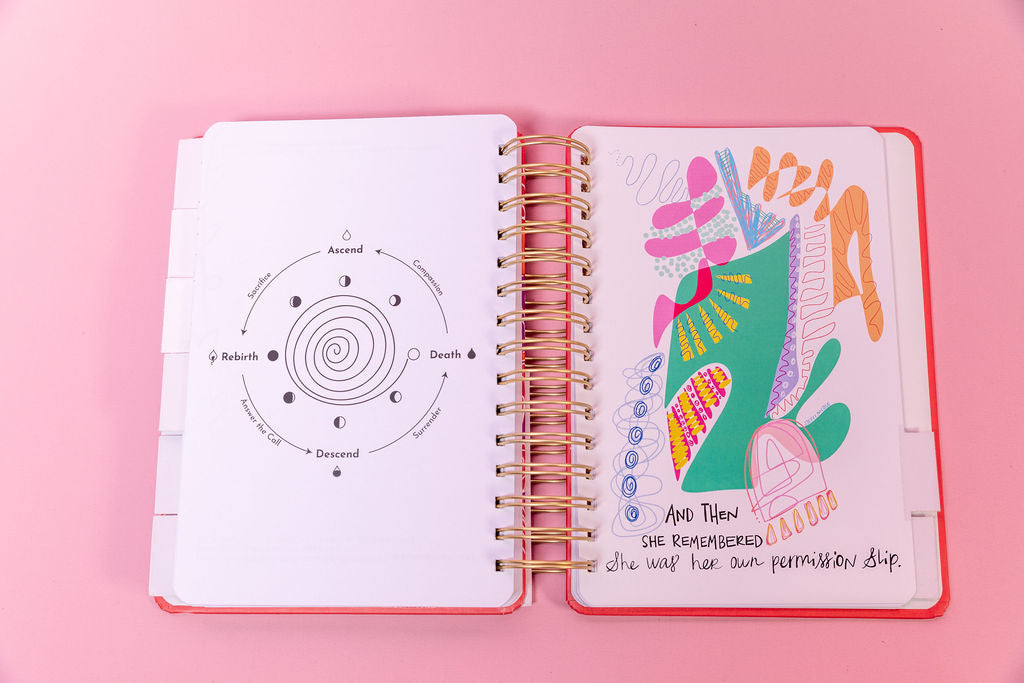 Ascend
Sacrifice
Compassion
Rebirth
Death
Answer the Call
Surrender
Descend
AND THEN
SHE REMEMBERED
She was her own permission slip.